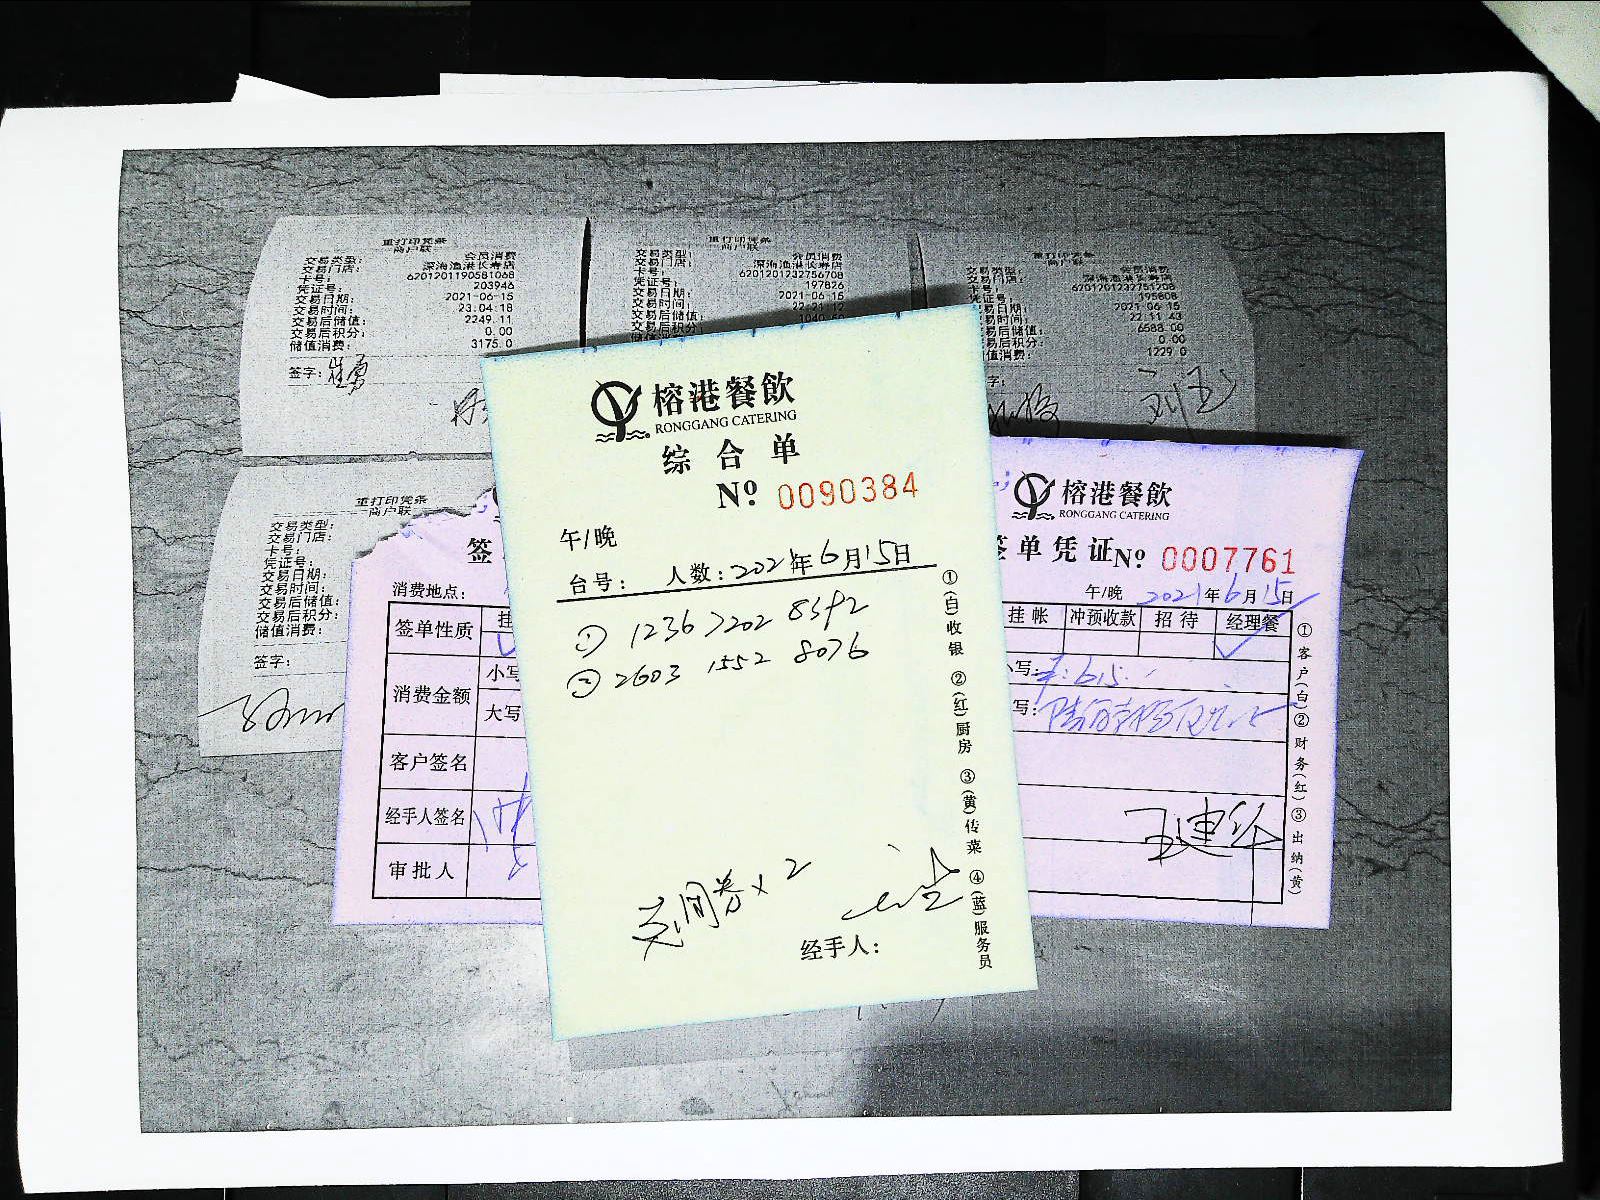 重打印凭条
商户联
交易类型： 会员消费
交易门店： 深海渔港长寿店
卡号： 6201201190581068
凭证号： 203946
交易日期： 2021-06-15
交易时间： 23:04:18
交易后储值： 2249.11
交易后积分： 0.00
储值消费： 3175.0
签字：
重打印凭条
商户联
交易类型： 会员消费
交易门店： 深海渔港长寿店
卡号： 6201201232756708
凭证号： 197826
交易日期： 2021-06-15
交易时间：
交易后储值：
储值
重打印凭条
商户联
交易类型： 会员消费
交易门店： 深海渔港长寿店
卡号：
凭证号： 195808
易日期： 2021-06-15
易时间： 22:11:43
易后储值： 6588.00
易后积分： 0.00
值消费： 1229.0
字：
重打印凭条
商户联
交易类型：
交易门店：
卡号：
凭证号：
交易日期：
交易时间：
交易后储值：
交易后积分：
储值消费：
签字：
签
消费地点：
签单性质 挂
消费金额 小写
大写
客户签名
经手人签名
审批人
榕港餐飲
RONGGANG CATERING
综合单
№ 0090384
午/晚
台号： 人数：2021年6月15日
① 1236 7202 8392
② 2603 1552 8076
关闭券×2
经手人：
①(白)收银 ②(红)厨房 ③(黄)传菜 ④(蓝)服务员
榕港餐飲
RONGGANG CATERING
签单凭证 № 0007761
午/晚 2021年6月15日
挂帐 冲预收款 招待 经理餐
小写： 615
写：
①客户(白)②财务(红)③出纳(黄)